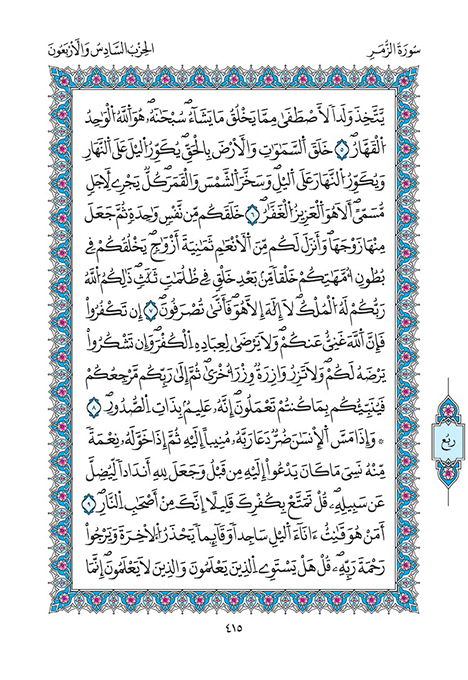 سُورَةُ الزُّمَرِ
الحِزْبُ السَّادِسُ وَالأَرْبَعُونَ
يَّتَّخِذَ وَلَداً لَّاصْطَفَىٰ مِمَّا يَخْلُقُ مَا يَشَآءُ سُبْحَٰنَهُۥ هُوَ اَللَّهُ الْوَٰحِدُ
الْقَهَّارُ ٥ خَلَقَ السَّمَٰوَٰتِ وَالْأَرْضَ بِالْحَقِّ يُكَوِّرُ اُليْلَ عَلَى النَّهَارِ
وَيُكَوِّرُ النَّهَارَ عَلَى اَليْلِ وَسَخَّرَ الشَّمْسَ وَالْقَمَرَ كُلٌّ يَجْرِي لِأَجَلٍ
مُّسَمّىً أَلَا هُوَ الْعَزِيزُ الْغَفَّٰرُ ٦ خَلَقَكُم مِّن نَّفْسٍ وَٰحِدَةٍ ثُمَّ جَعَلَ
مِنْهَا زَوْجَهَا وَأَنزَلَ لَكُم مِّنَ اَلْأَنْعَٰمِ ثَمَٰنِيَةَ أَزْوَٰجٍ يَخْلُقُكُمْ فِي
بُطُونِ أُمَّهَٰتِكُمْ خَلْقاً مِّنۢ بَعْدِ خَلْقٍ فِي ظُلُمَٰتٍ ثَلَٰثٍ ذَٰلِكُمُ اللَّهُ
رَبُّكُمْ لَهُ الْمُلْكُ لَآ إِلَٰهَ إِلَّا هُوَ فَأَنّىٰ تُصْرَفُونَ ٧ إِن تَكْفُرُواْ
فَإِنَّ اَللَّهَ غَنِيٌّ عَنكُمْ وَلَا يَرْضَىٰ لِعِبَادِهِ اِلْكُفْرَ وَإِن تَشْكُرُواْ
يَرْضَهُ لَكُمْ وَلَا تَزِرُ وَازِرَةٌ وِزْرَ أُخْرَىٰ ثُمَّ إِلَىٰ رَبِّكُم مَّرْجِعُكُمْ
فَيُنَبِّئُكُم بِمَا كُنتُمْ تَعْمَلُونَ إِنَّهُۥ عَلِيمٌۢ بِذَاتِ الصُّدُورِ ٨
۞ وَإِذَا مَسَّ اَلْإِنسَٰنَ ضُرٌّ دَعَا رَبَّهُۥ مُنِيباً إِلَيْهِ ثُمَّ إِذَا خَوَّلَهُۥ نِعْمَةً
مِّنْهُ نَسِيَ مَا كَانَ يَدْعُواْ إِلَيْهِ مِن قَبْلُ وَجَعَلَ لِلهِ أَندَاداً لِّيُضِلَّ
عَن سَبِيلِهِۦ قُلْ تَمَتَّعْ بِكُفْرِكَ قَلِيلًا إِنَّكَ مِنْ أَصْحَٰبِ النّارِ ٩
أَمَنْ هُوَ قَٰنِتٌ ءَانَآءَ اَليْلِ سَاجِداً وَقَآئِماً يَحْذَرُ الْأٓخِرَةَ وَيَرْجُواْ
رَحْمَةَ رَبِّهِۦ قُلْ هَلْ يَسْتَوِي اِلذِينَ يَعْلَمُونَ وَالذِينَ لَا يَعْلَمُونَ إِنَّمَا
رُبُع
٤١٥